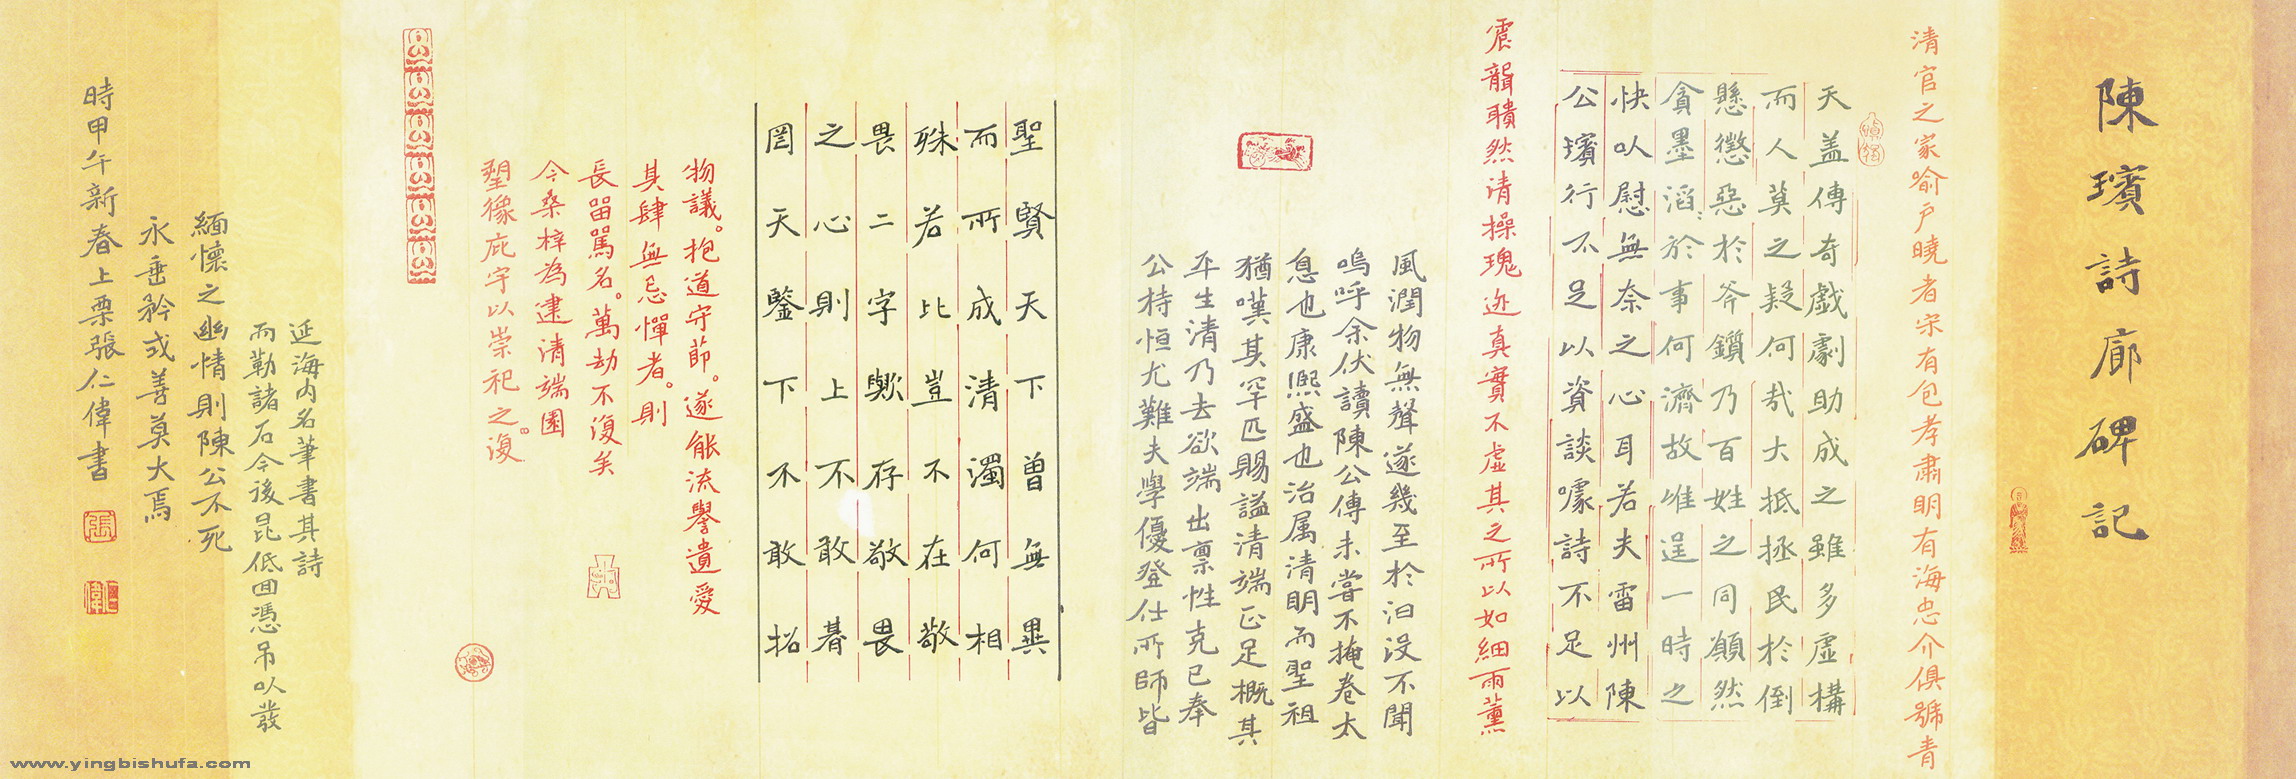 陳璸詩廊碑記
清官之家喻户曉者宋有包孝肅明有海忠介俱號青
天盖傳奇戲劇助成之雖多虛構
而人莫之疑何哉大抵拯民於倒
懸懲惡於斧鑕乃百姓之同願然
貪墨滔滔於事何濟故唯逞一時之
快以慰無奈之心耳若夫雷州陳
公璸行不足以資談噱詩不足以
震聾聵然清操瑰迹真實不虛其之所以如細雨薰
風潤物無聲遂幾至於汩沒不聞
嗚呼余伏讀陳公傳未嘗不掩卷太
息也康熙盛也治属清明而聖祖
猶嘆其罕匹賜謚清端正足概其
平生清乃去欲端出禀性克已奉
公持恒尤難夫學優登仕所師皆
聖賢天下曾無異
而所成清濁何相
殊若比豈不在敬
畏二字歟存敬畏
之心則上不敢碁
罔天鑒下不敢招
物議。抱道守節。遂能流譽遺愛
其肆無忌憚者。則
長留罵名。萬劫不復矣
今桑梓為建清端園
塑像庇宇以崇祀之。復
延海内名筆書其詩
而勒諸石今後昆低回憑吊以發
緬懷之幽情則陳公不死
永垂矜式善莫大焉
時甲午新春上栗張仁偉書
www.yingbishufa.com